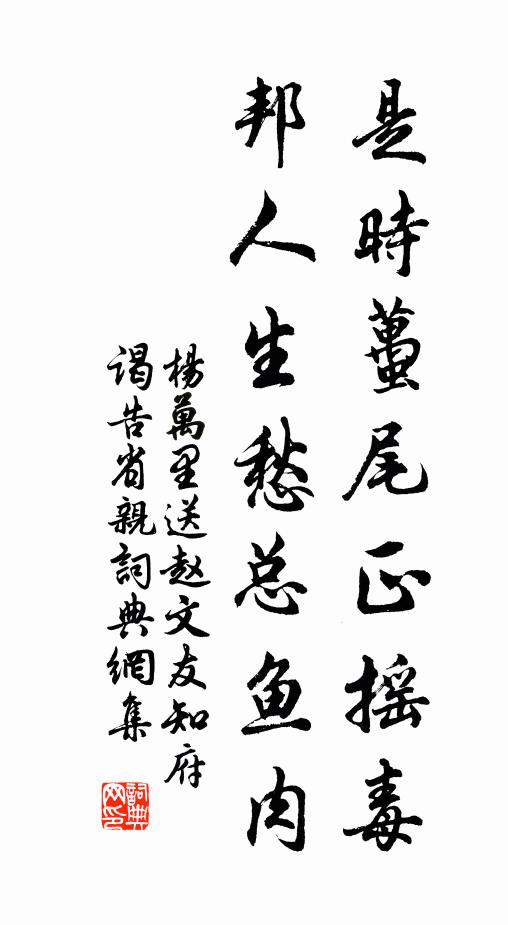 是時蠆尾正摇毒
邦人生愁总鱼肉
楊萬里送赵文友知府
谒告省親詞典網集
詞典
网印